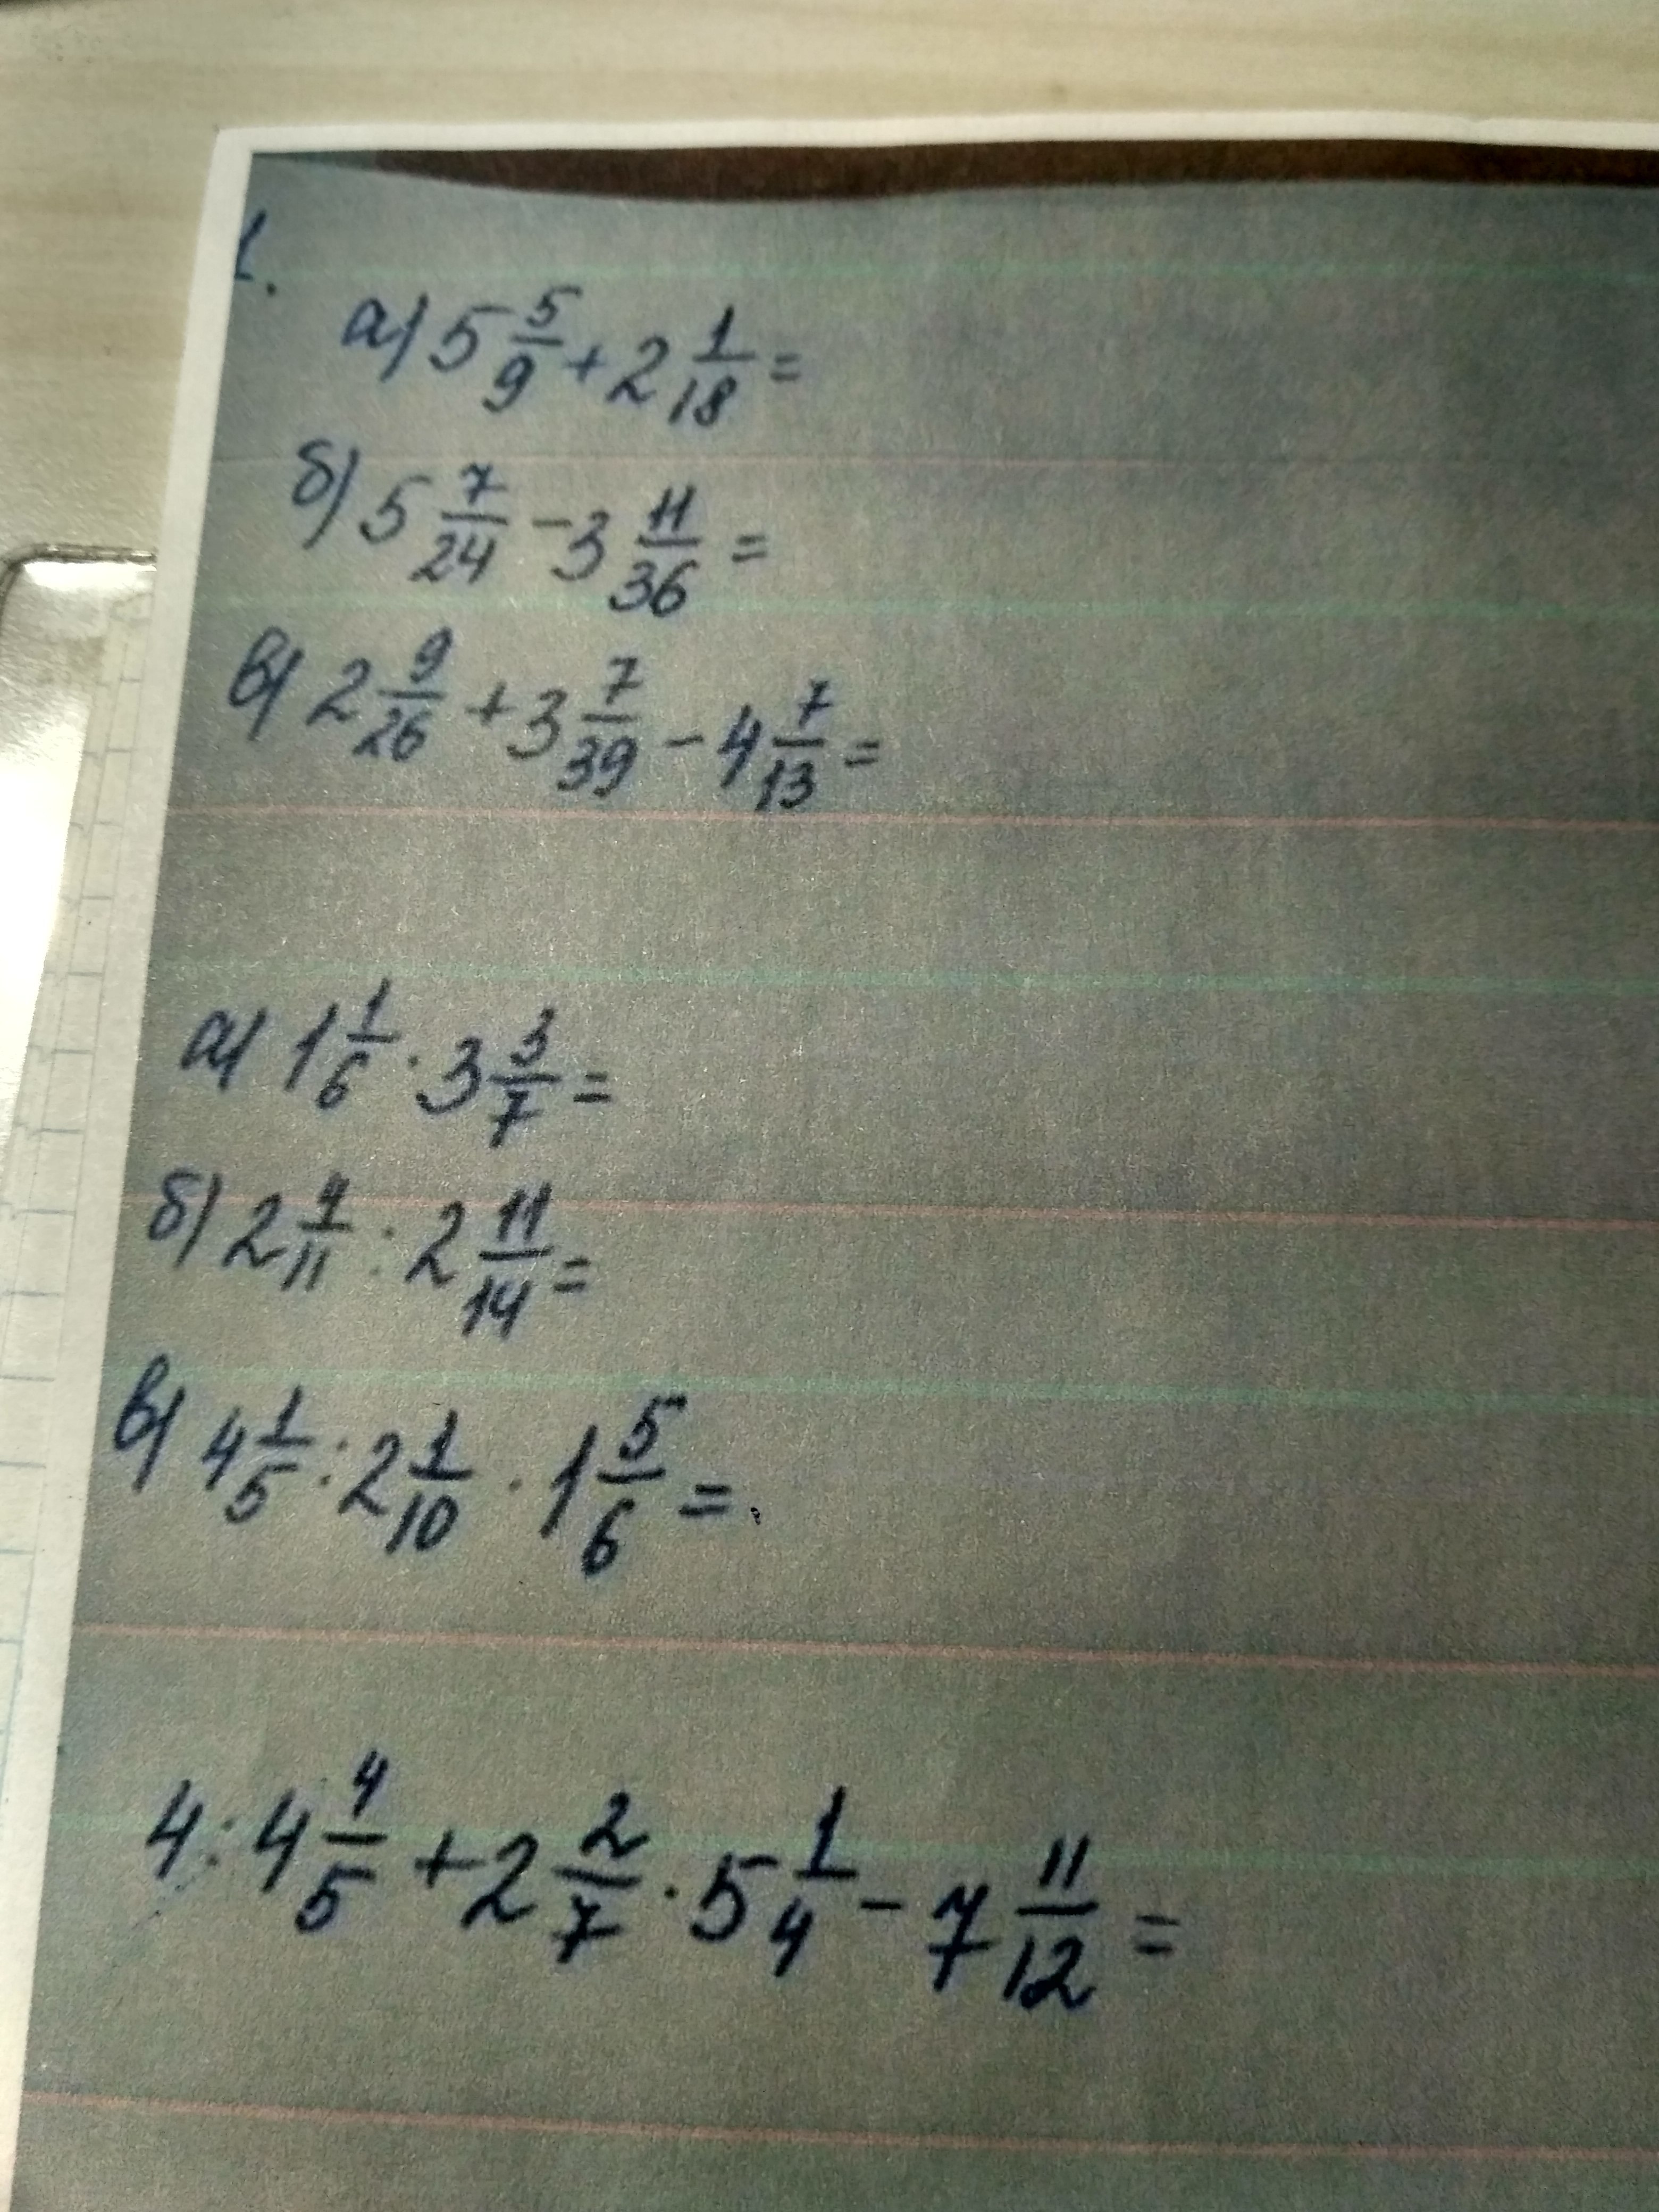 1.
а) 5 5/9 + 2 1/18 =
б) 5 7/24 - 3 11/36 =
в) 2 9/26 + 3 7/39 - 4 7/13 =
а) 1 1/6 · 3 3/7 =
б) 2 4/11 : 2 11/14 =
в) 4 1/5 : 2 1/10 · 1 5/6 =
4 : 4 4/5 + 2 2/7 · 5 1/4 - 7 11/12 =